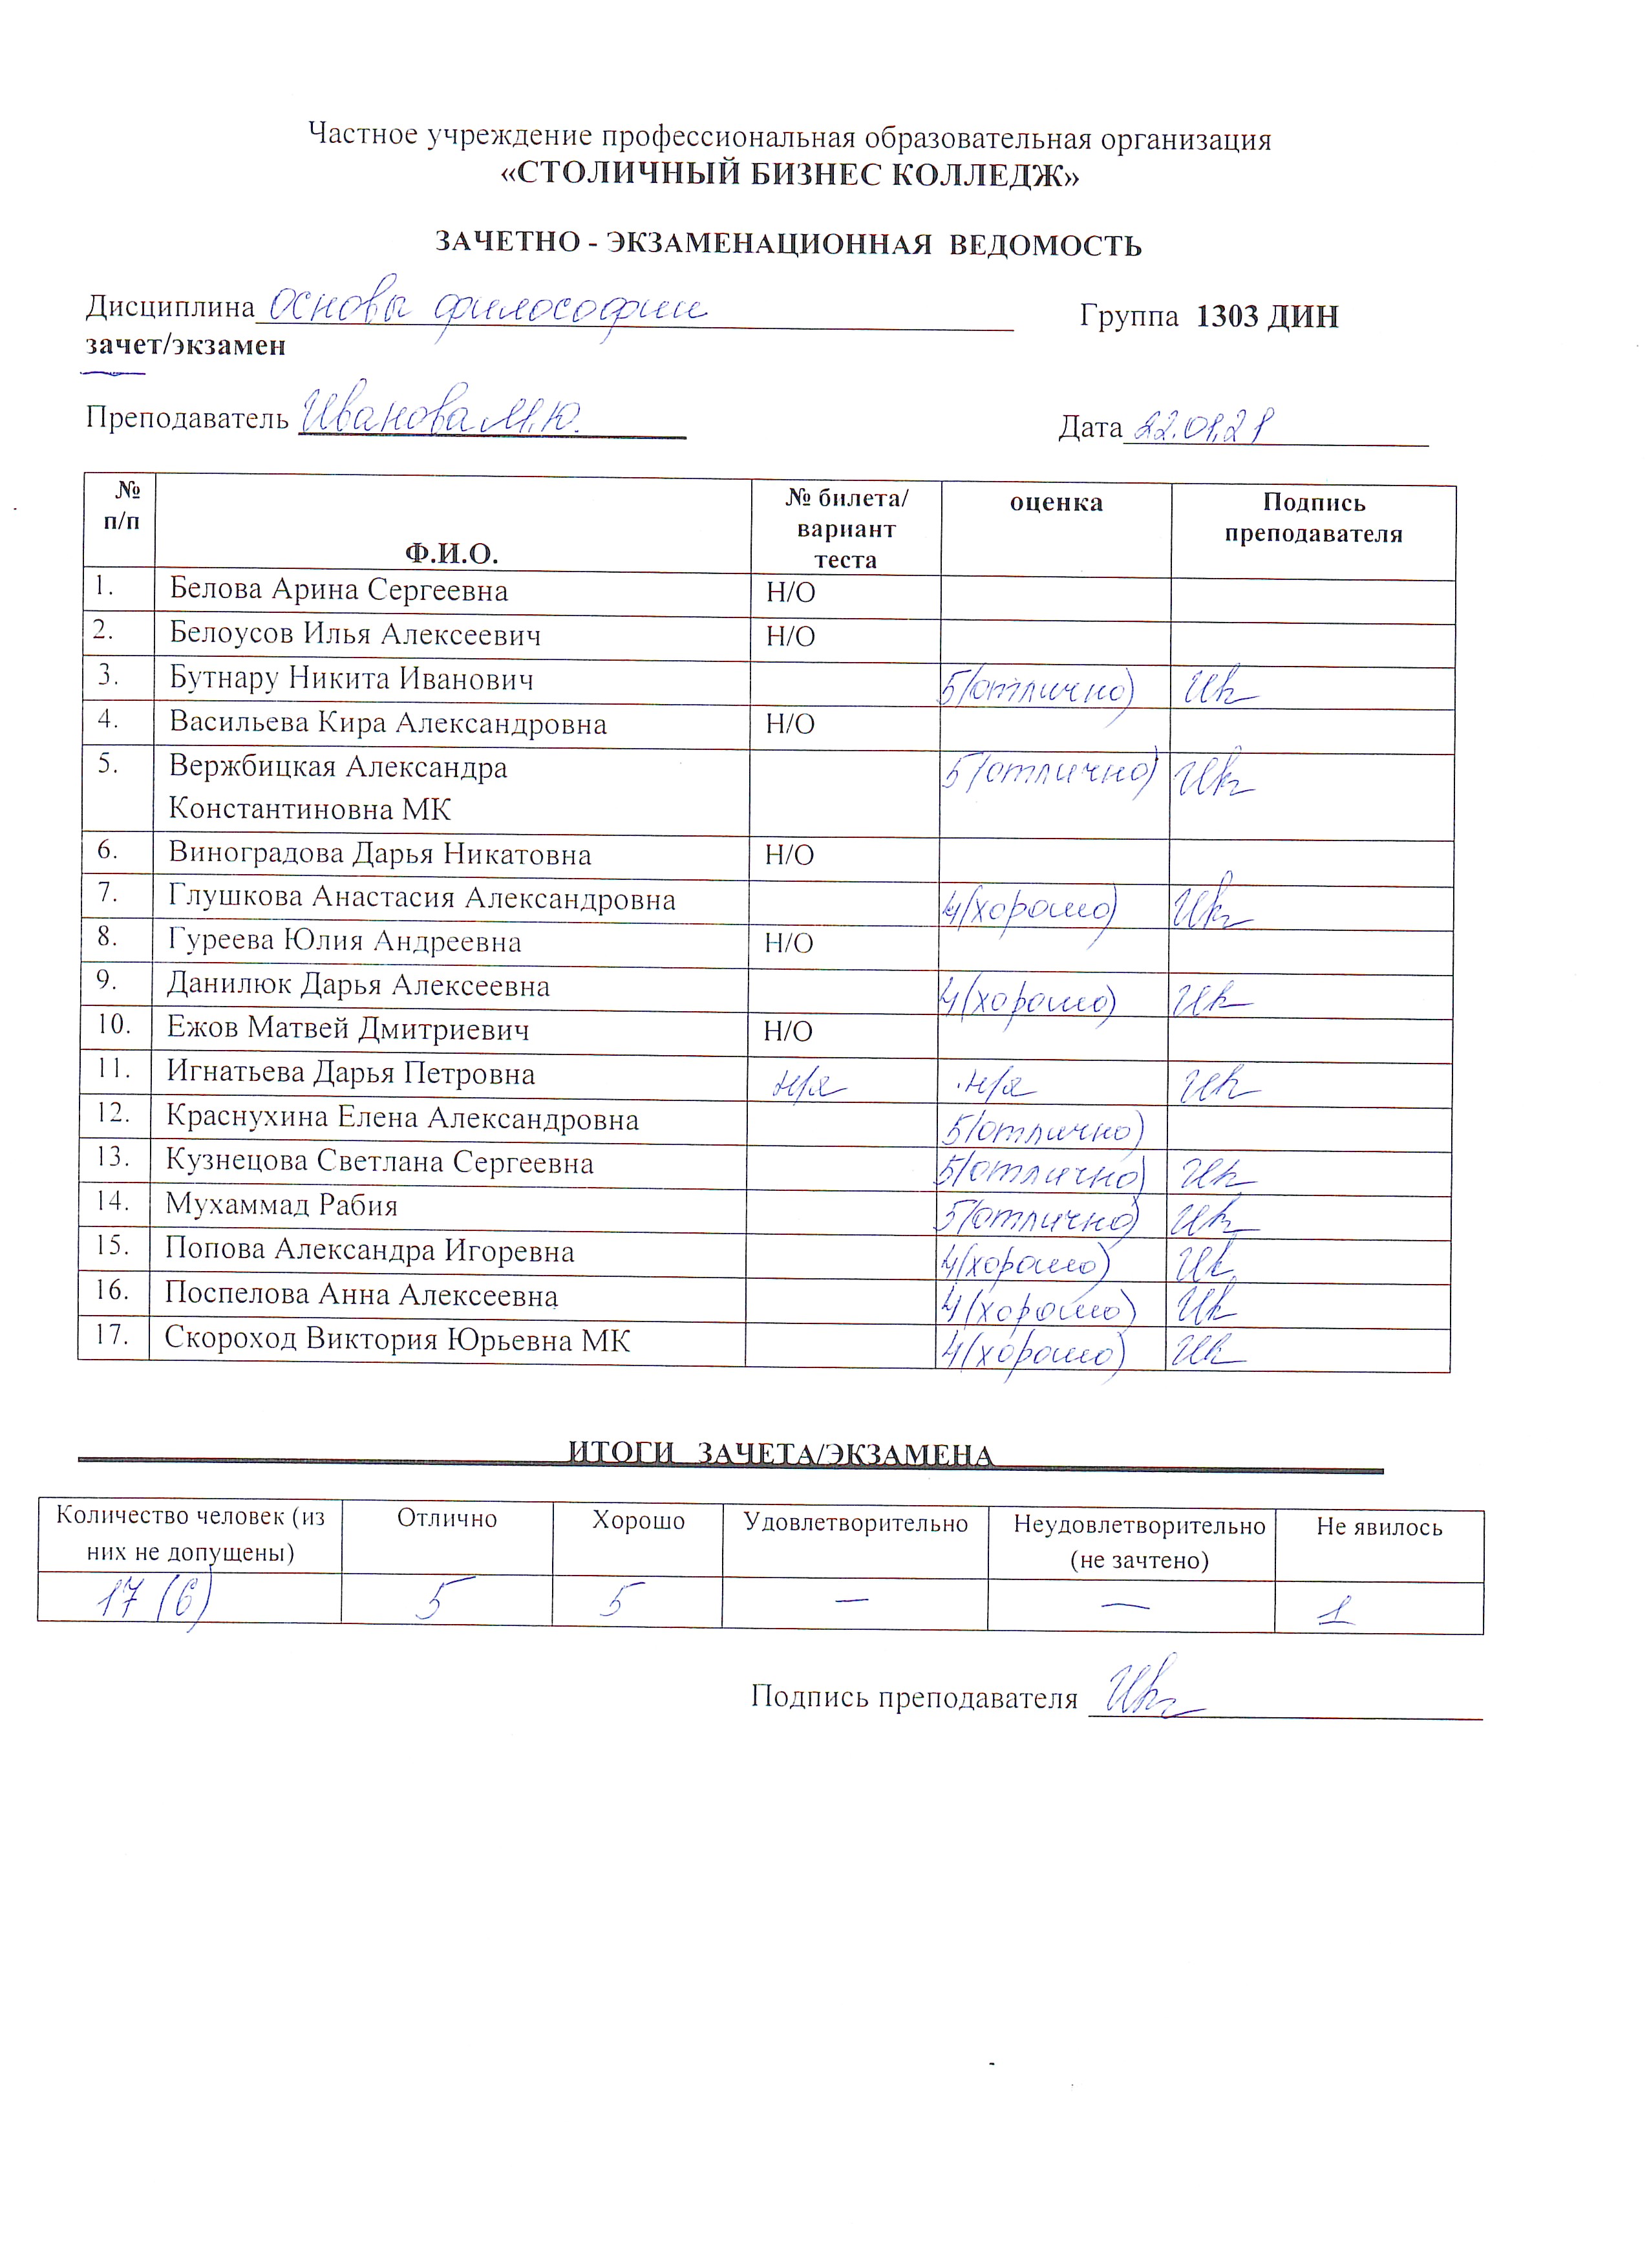 Частное учреждение профессиональная образовательная организация
«СТОЛИЧНЫЙ БИЗНЕС КОЛЛЕДЖ»
ЗАЧЕТНО - ЭКЗАМЕНАЦИОННАЯ ВЕДОМОСТЬ
Дисциплина основы философии Группа 1303 ДИН
зачет/экзамен
Преподаватель Иванова М.Ю. Дата 22.01.21
№ п/п Ф.И.О. № билета/ вариант теста оценка Подпись преподавателя
1. Белова Арина Сергеевна Н/О
2. Белоусов Илья Алексеевич Н/О
3. Бутнару Никита Иванович 5(отлично)
4. Васильева Кира Александровна Н/О
5. Вержбицкая Александра 5(отлично)
Константиновна МК
6. Виноградова Дарья Никатовна Н/О
7. Глушкова Анастасия Александровна 4(хорошо)
8. Гуреева Юлия Андреевна Н/О
9. Данилюк Дарья Алексеевна 4(хорошо)
10. Ежов Матвей Дмитриевич Н/О
11. Игнатьева Дарья Петровна н/я н/я
12. Краснухина Елена Александровна 5(отлично)
13. Кузнецова Светлана Сергеевна 5(отлично)
14. Мухаммад Рабия 5(отлично)
15. Попова Александра Игоревна 4(хорошо)
16. Поспелова Анна Алексеевна 4(хорошо)
17. Скороход Виктория Юрьевна МК 4(хорошо)
ИТОГИ ЗАЧЕТА/ЭКЗАМЕНА
Количество человек (из Отлично Хорошо Удовлетворительно Неудовлетворительно Не явилось
них не допущены) (не зачтено)
17 (6) 5 5 — — 1
Подпись преподавателя